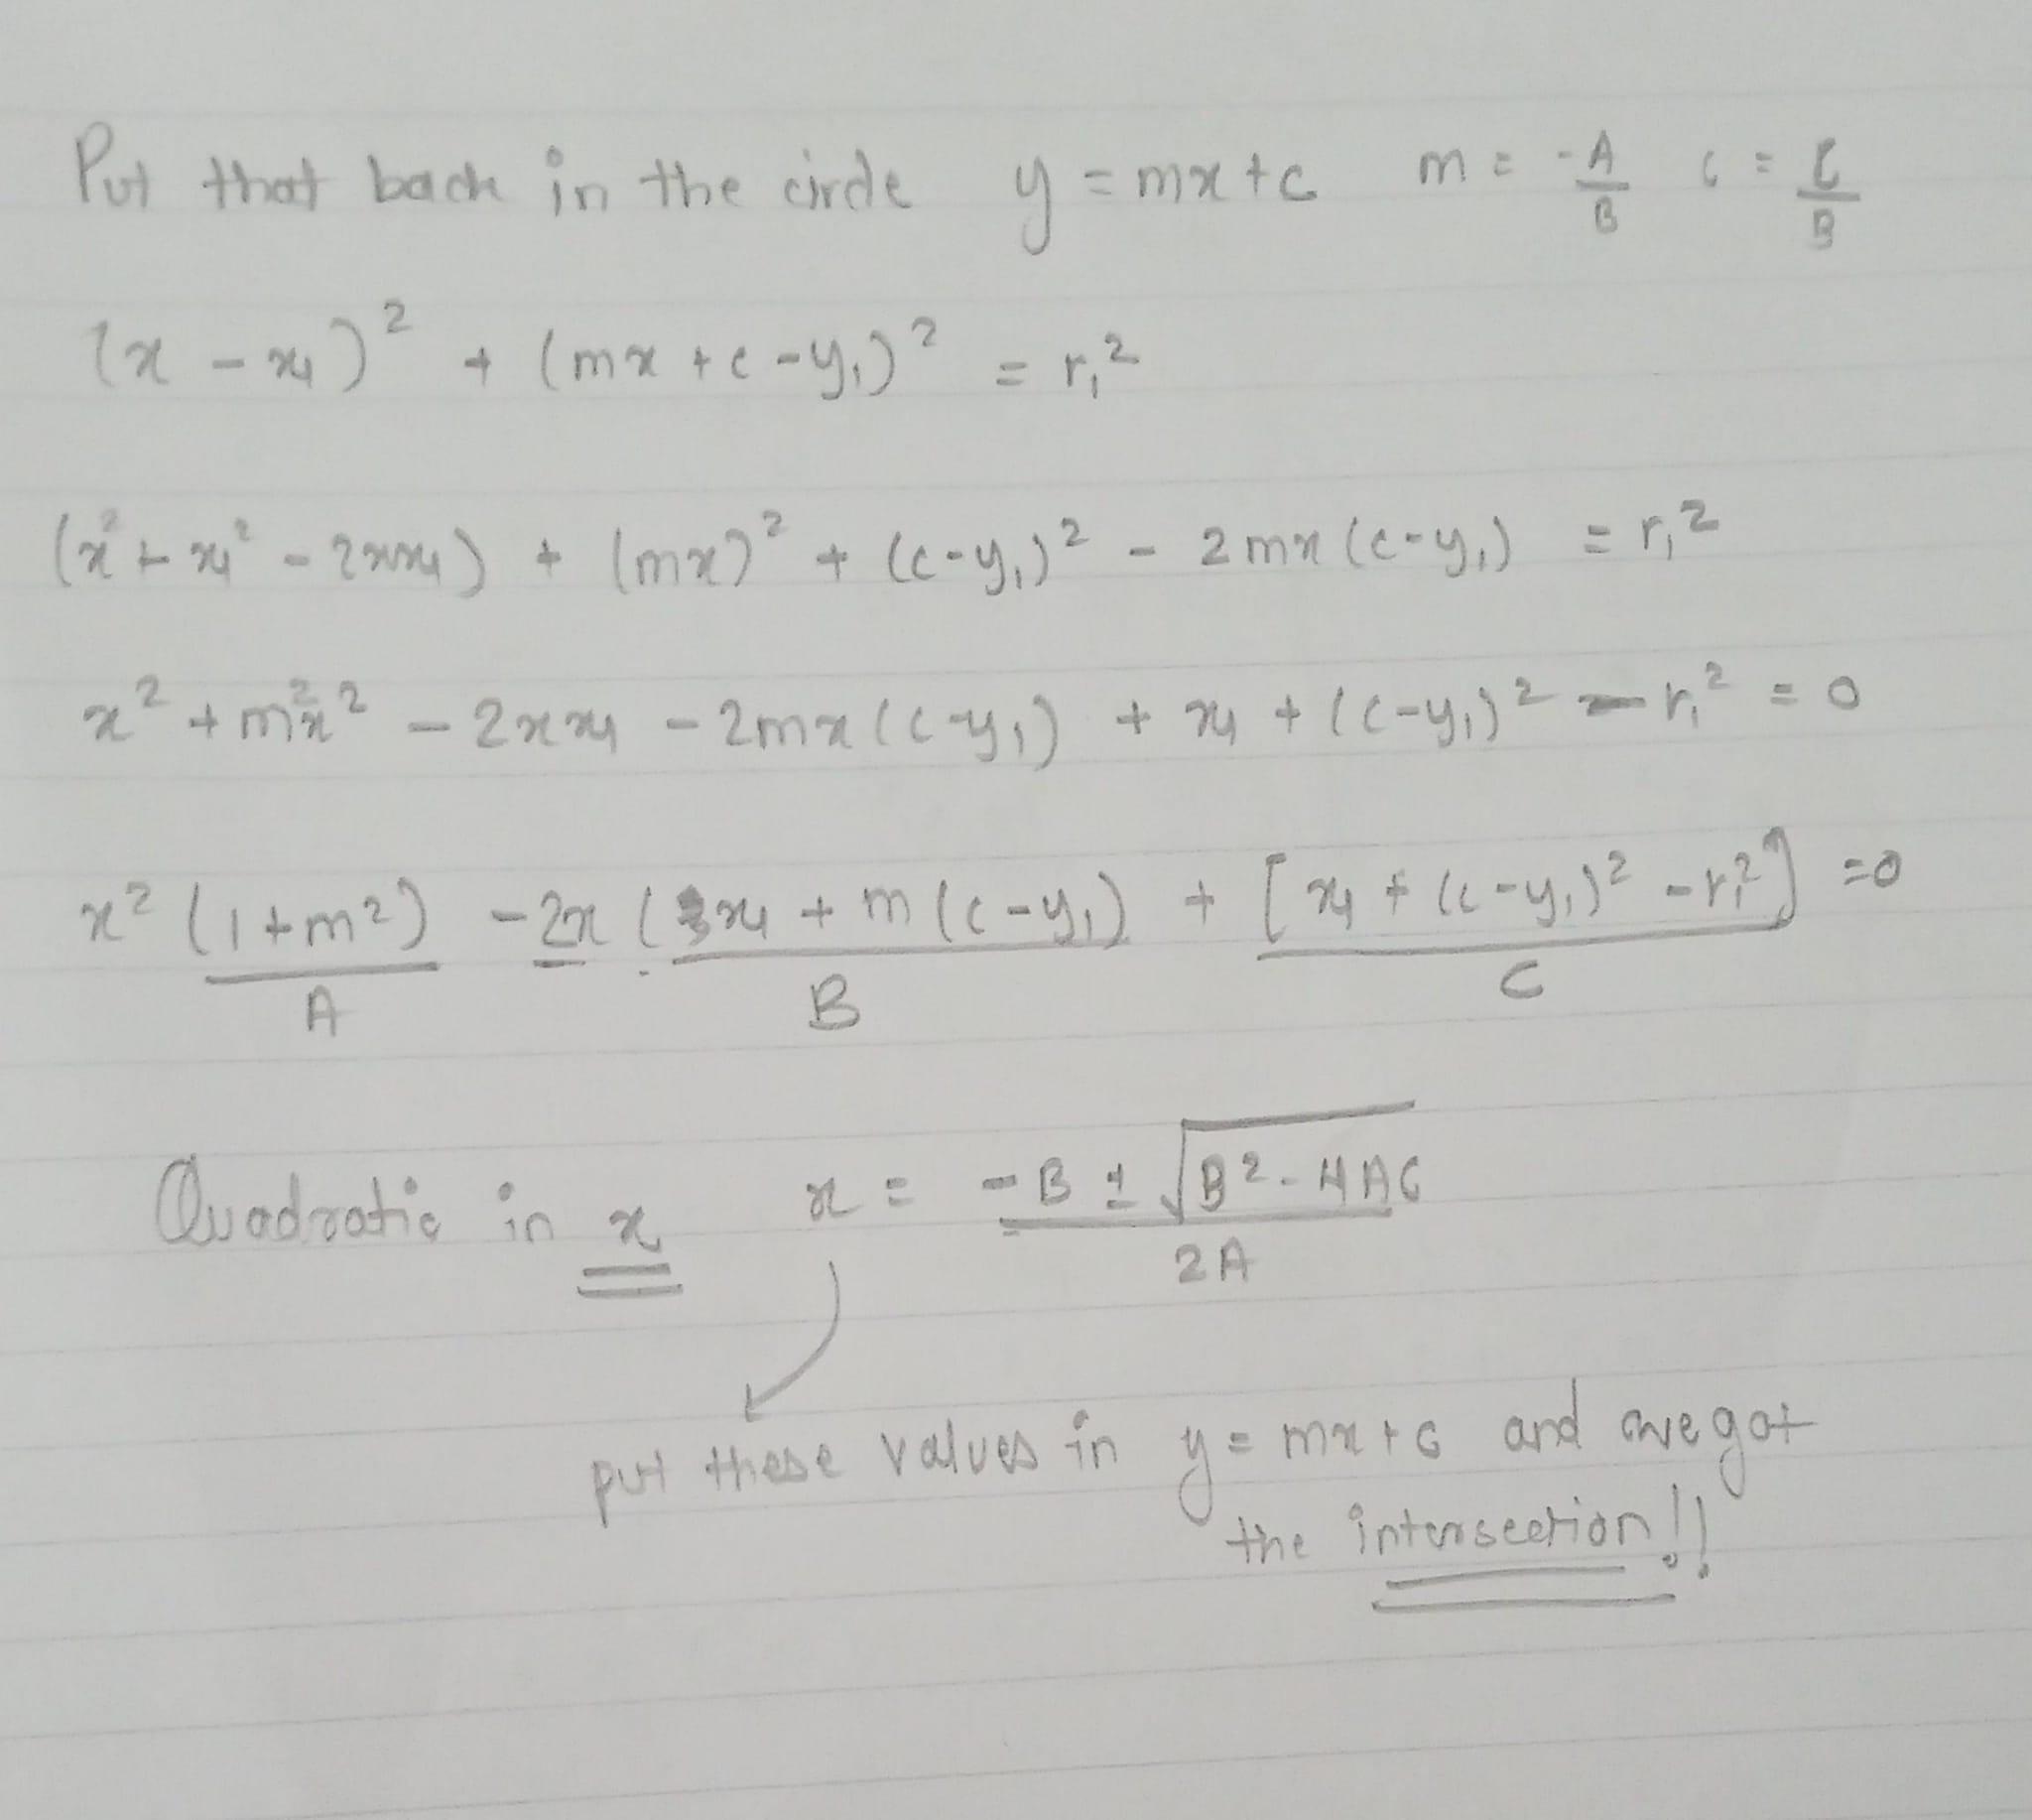 Put that back in the circle y = mx + c m = -A/B c = C/B
(x - x₁)² + (mx + c - y₁)² = r₁²
(x² + x₁² - 2xx₁) + (mx)² + (c - y₁)² - 2mx(c - y₁) = r₁²
x² + m²x² - 2xx₁ - 2mx(c - y₁) + x₁ + (c - y₁)² - r₁² = 0
x² (1 + m²) - 2x (x₁ + m(c - y₁) + [x₁ + (c - y₁)² - r₁²] = 0
A B C
Quadratic in x x = -B ± √B² - 4AC / 2A
put these values in y = mx + c and we got
the intersection!!